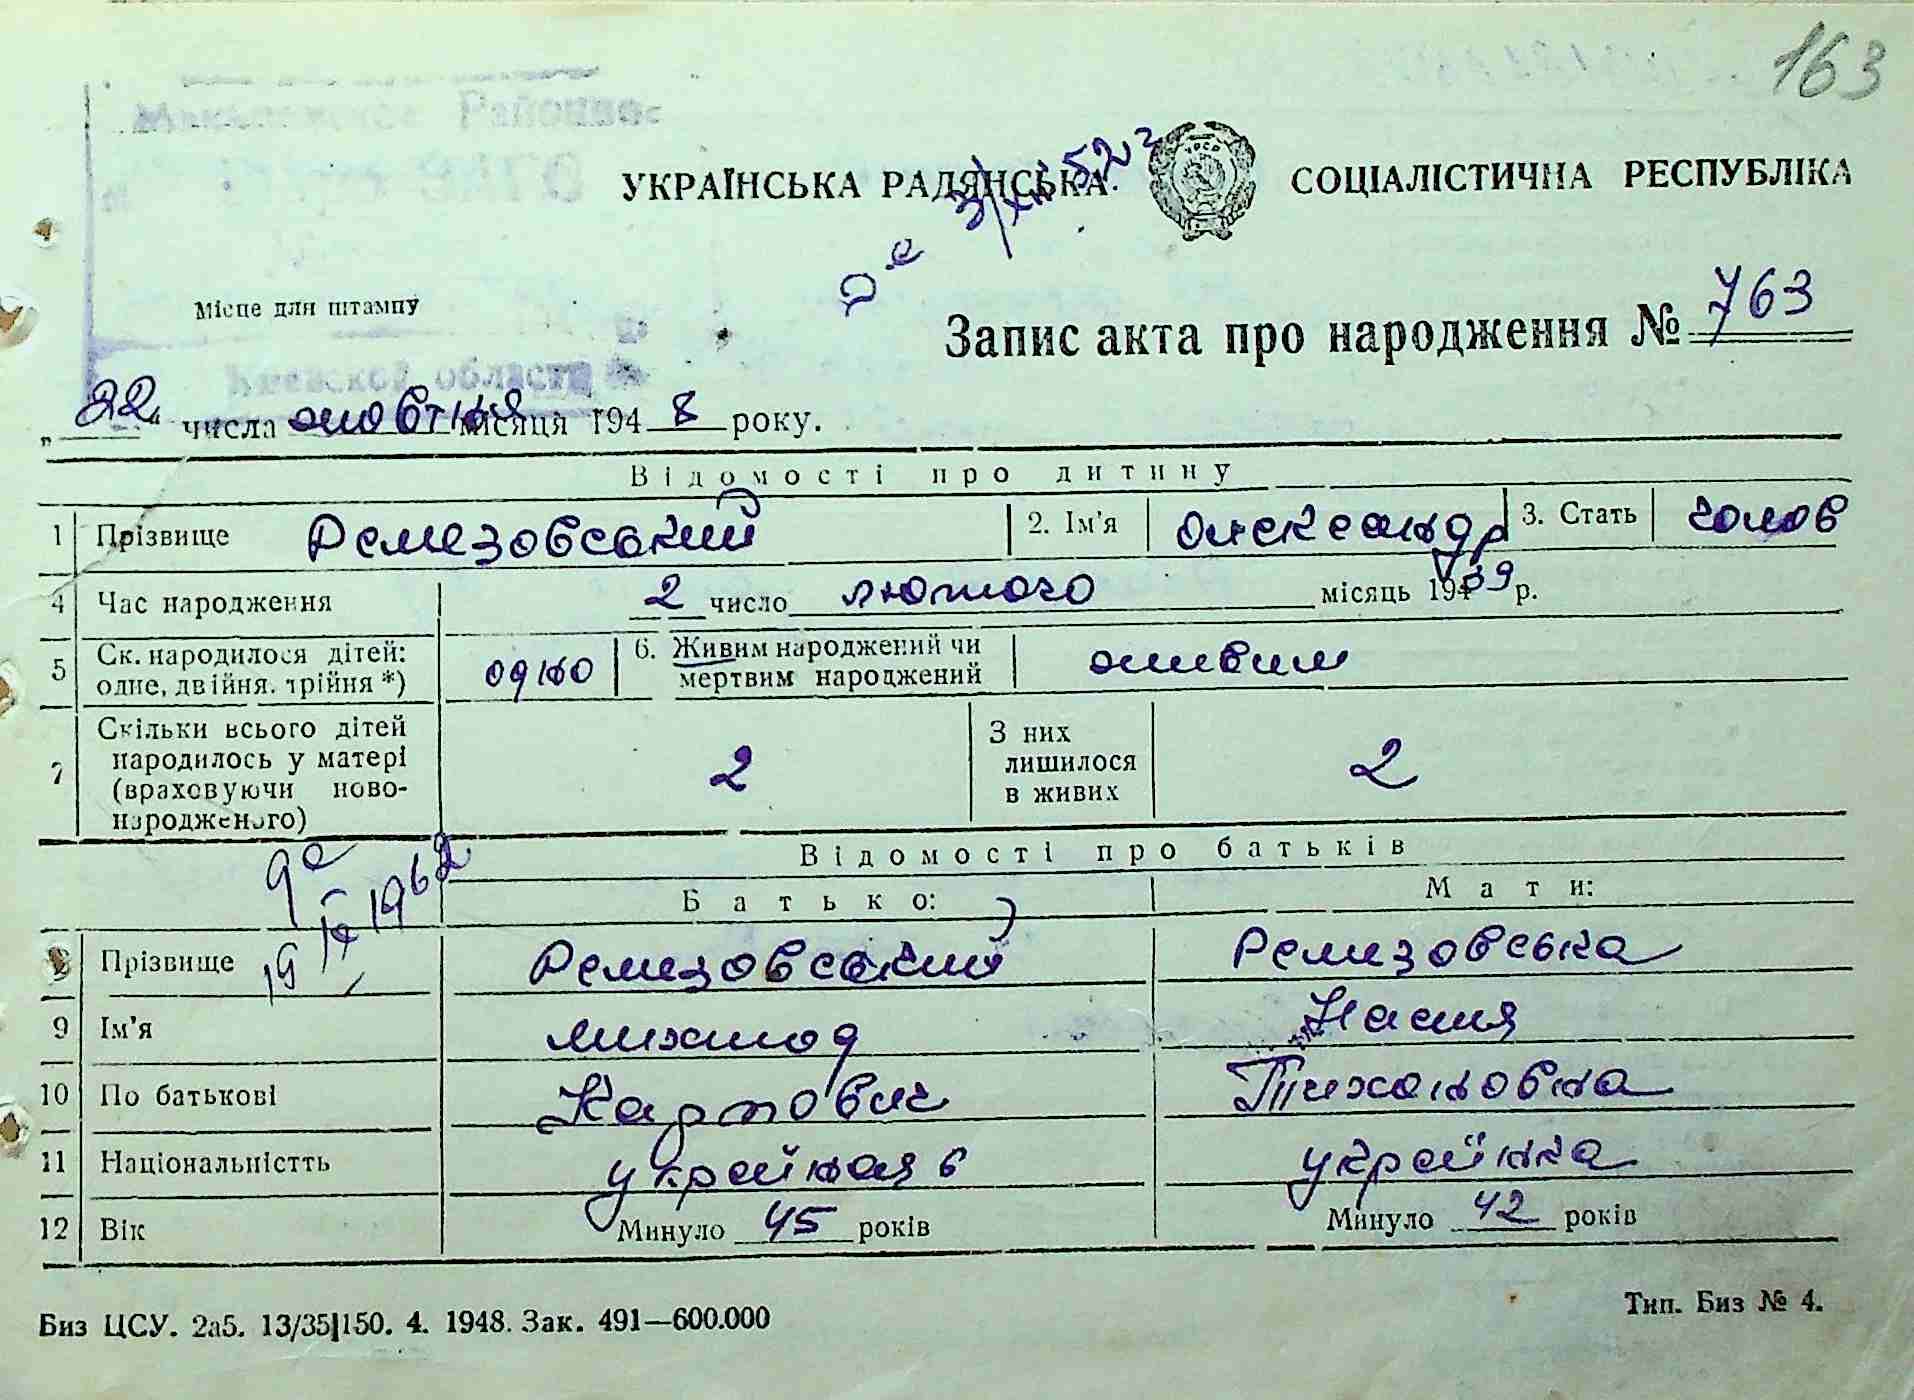 163
Районное
ЗАГС
УКРАЇНСЬКА РАДЯНСЬКА СОЦІАЛІСТИЧНА РЕСПУБЛІКА
3/XII 52 г
Місце для штампу
Запис акта про народження № 763
Киевской области
„22“ числа жовтня місяця 1948 року.
Відомості про дитину
1 Прізвище Ремезовський 2. Ім'я Олександр 3. Стать чолов
4 Час народження 2 число лютого місяць 1939 р.
5 Ск. народилося дітей: одне, двійня, трійня *) одно 6. Живим народжений чи мертвим народжений живим
7 Скільки всього дітей народилось у матері (враховуючи ново-народженого) 2 З них лишилося в живих 2
Відомості про батьків
Батько: Мати:
8 Прізвище Ремезовський Ремезовська
9 Ім'я Михайло Настя
10 По батькові Карпович Тихоновна
11 Національністть українець українка
12 Вік Минуло 45 років Минуло 42 років
Биз ЦСУ. 2а5. 13/35|150. 4. 1948. Зак. 491—600.000
Тип. Биз № 4.